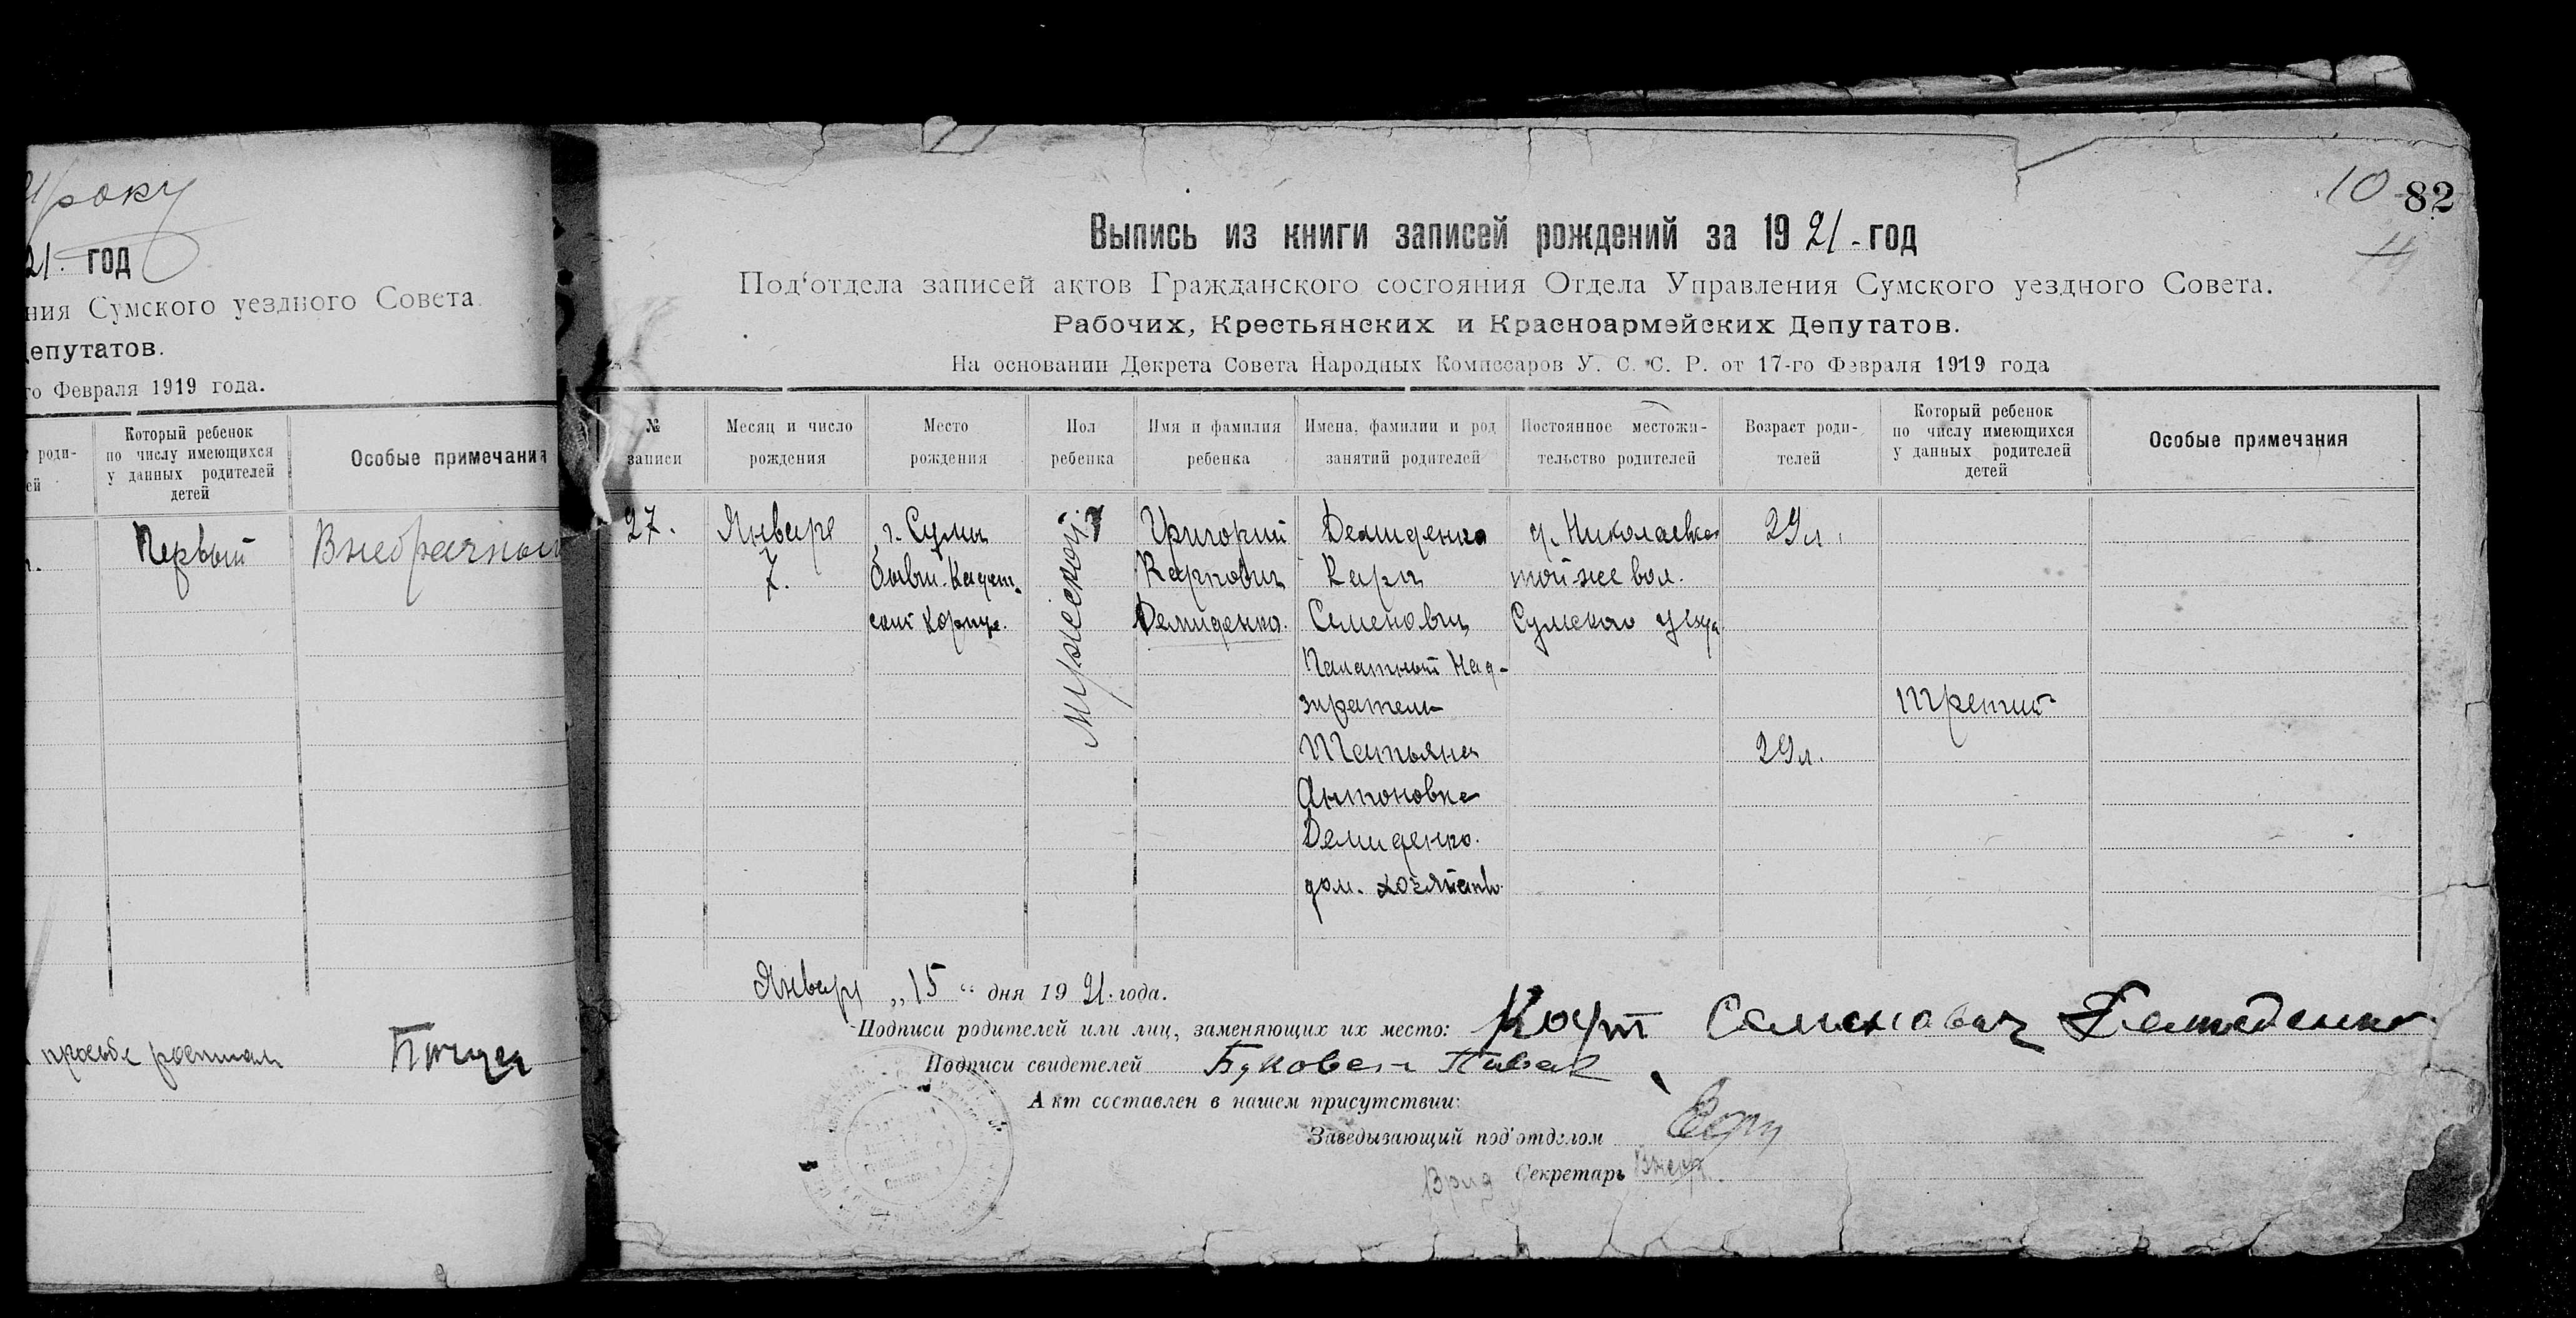 року
21. год
ния Сумского уездного Совета.
епутатов.
го Февраля 1919 года.
роди-
ей
Который ребенок
по числу имеющихся
у данных родителей
детей
Особые примечания
Первый
Внебрачный
10 82
Выпись из книги записей рождений за 1921-год
Под‘отдела записей актов Гражданского состояния Отдела Управления Сумского уездного Совета.
Рабочих, Крестьянских и Красноармейских Депутатов.
На основании Декрета Совета Народных Комиссаров У. С. С. Р. от 17-го Февраля 1919 года
№
записи
Месяц и число
рождения
Место
рождения
Пол
ребенка
Имя и фамилия
ребенка
Имена, фамилии и род
занятий родителей
Постоянное местожи-
тельство родителей
Возраст роди-
телей
Который ребенок
по числу имеющихся
у данных родителей
детей
Особые примечания
27.
Января
7.
г. Сумы
бывш. Кадет.
ский корпус.
мужеской
Григорий
Карпович
Демиденко.
Демиденко
Карп
Семенович
Палатный Над-
зиратель
Татьяна
Антоновна
Демиденко.
дом. хозяйство.
д. Николаевка
той-же вол.
Сумского уезда
29 л.
29 л.
Третий
Января „15“ дня 1921. года.
Подписи родителей или лиц, заменяющих их место: Карп Семенович Демиденко
Подписи свидетелей
Акт составлен в нашем присутствии:
Заведывающий под‘отделом
Врид Секретарь